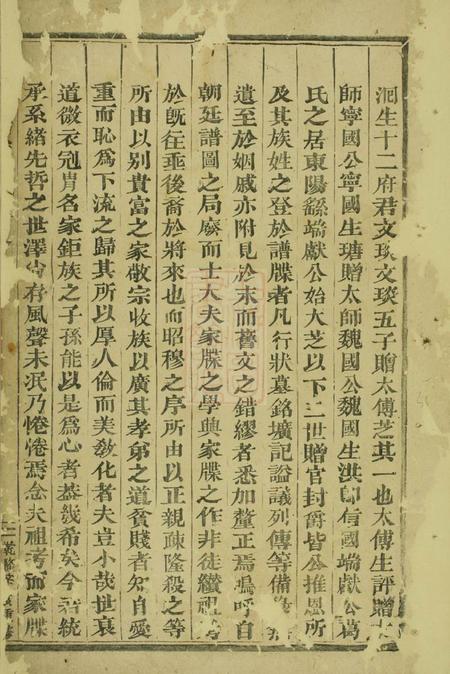 泗生十二府君文琰文琰五子贈太傅芝其一也太傅生評贈太
師寧國公寧國生瑭贈太師魏國公魏國生洪卽信國端獻公葛
氏之居東陽繇端獻公始大芝以下三世贈官封爵皆公推恩所
及其族姓之登於譜牒者凡行狀墓銘壙記謚議列傳等備
遺至於姻戚亦附見於末而舊文之錯繆者悉加釐正焉嗚呼自
朝廷譜圖之局廢而士大夫家牒之學興家牒之作非徒纘祖
於旣往垂後裔於將來也而昭穆之序所由以正親疎隆殺之等
所由以別貴富之家敬宗收族以廣其孝弟之道貧賤者知自愛
重而恥爲下流之歸其所以厚人倫而美敎化者夫豈小哉世衰
道微衣冠胄名家鉅族之子孫能以是爲心者葢幾希矣今 統
承系緒先哲之世澤尙存風聲未泯乃惓惓焉念夫祖考而家牒